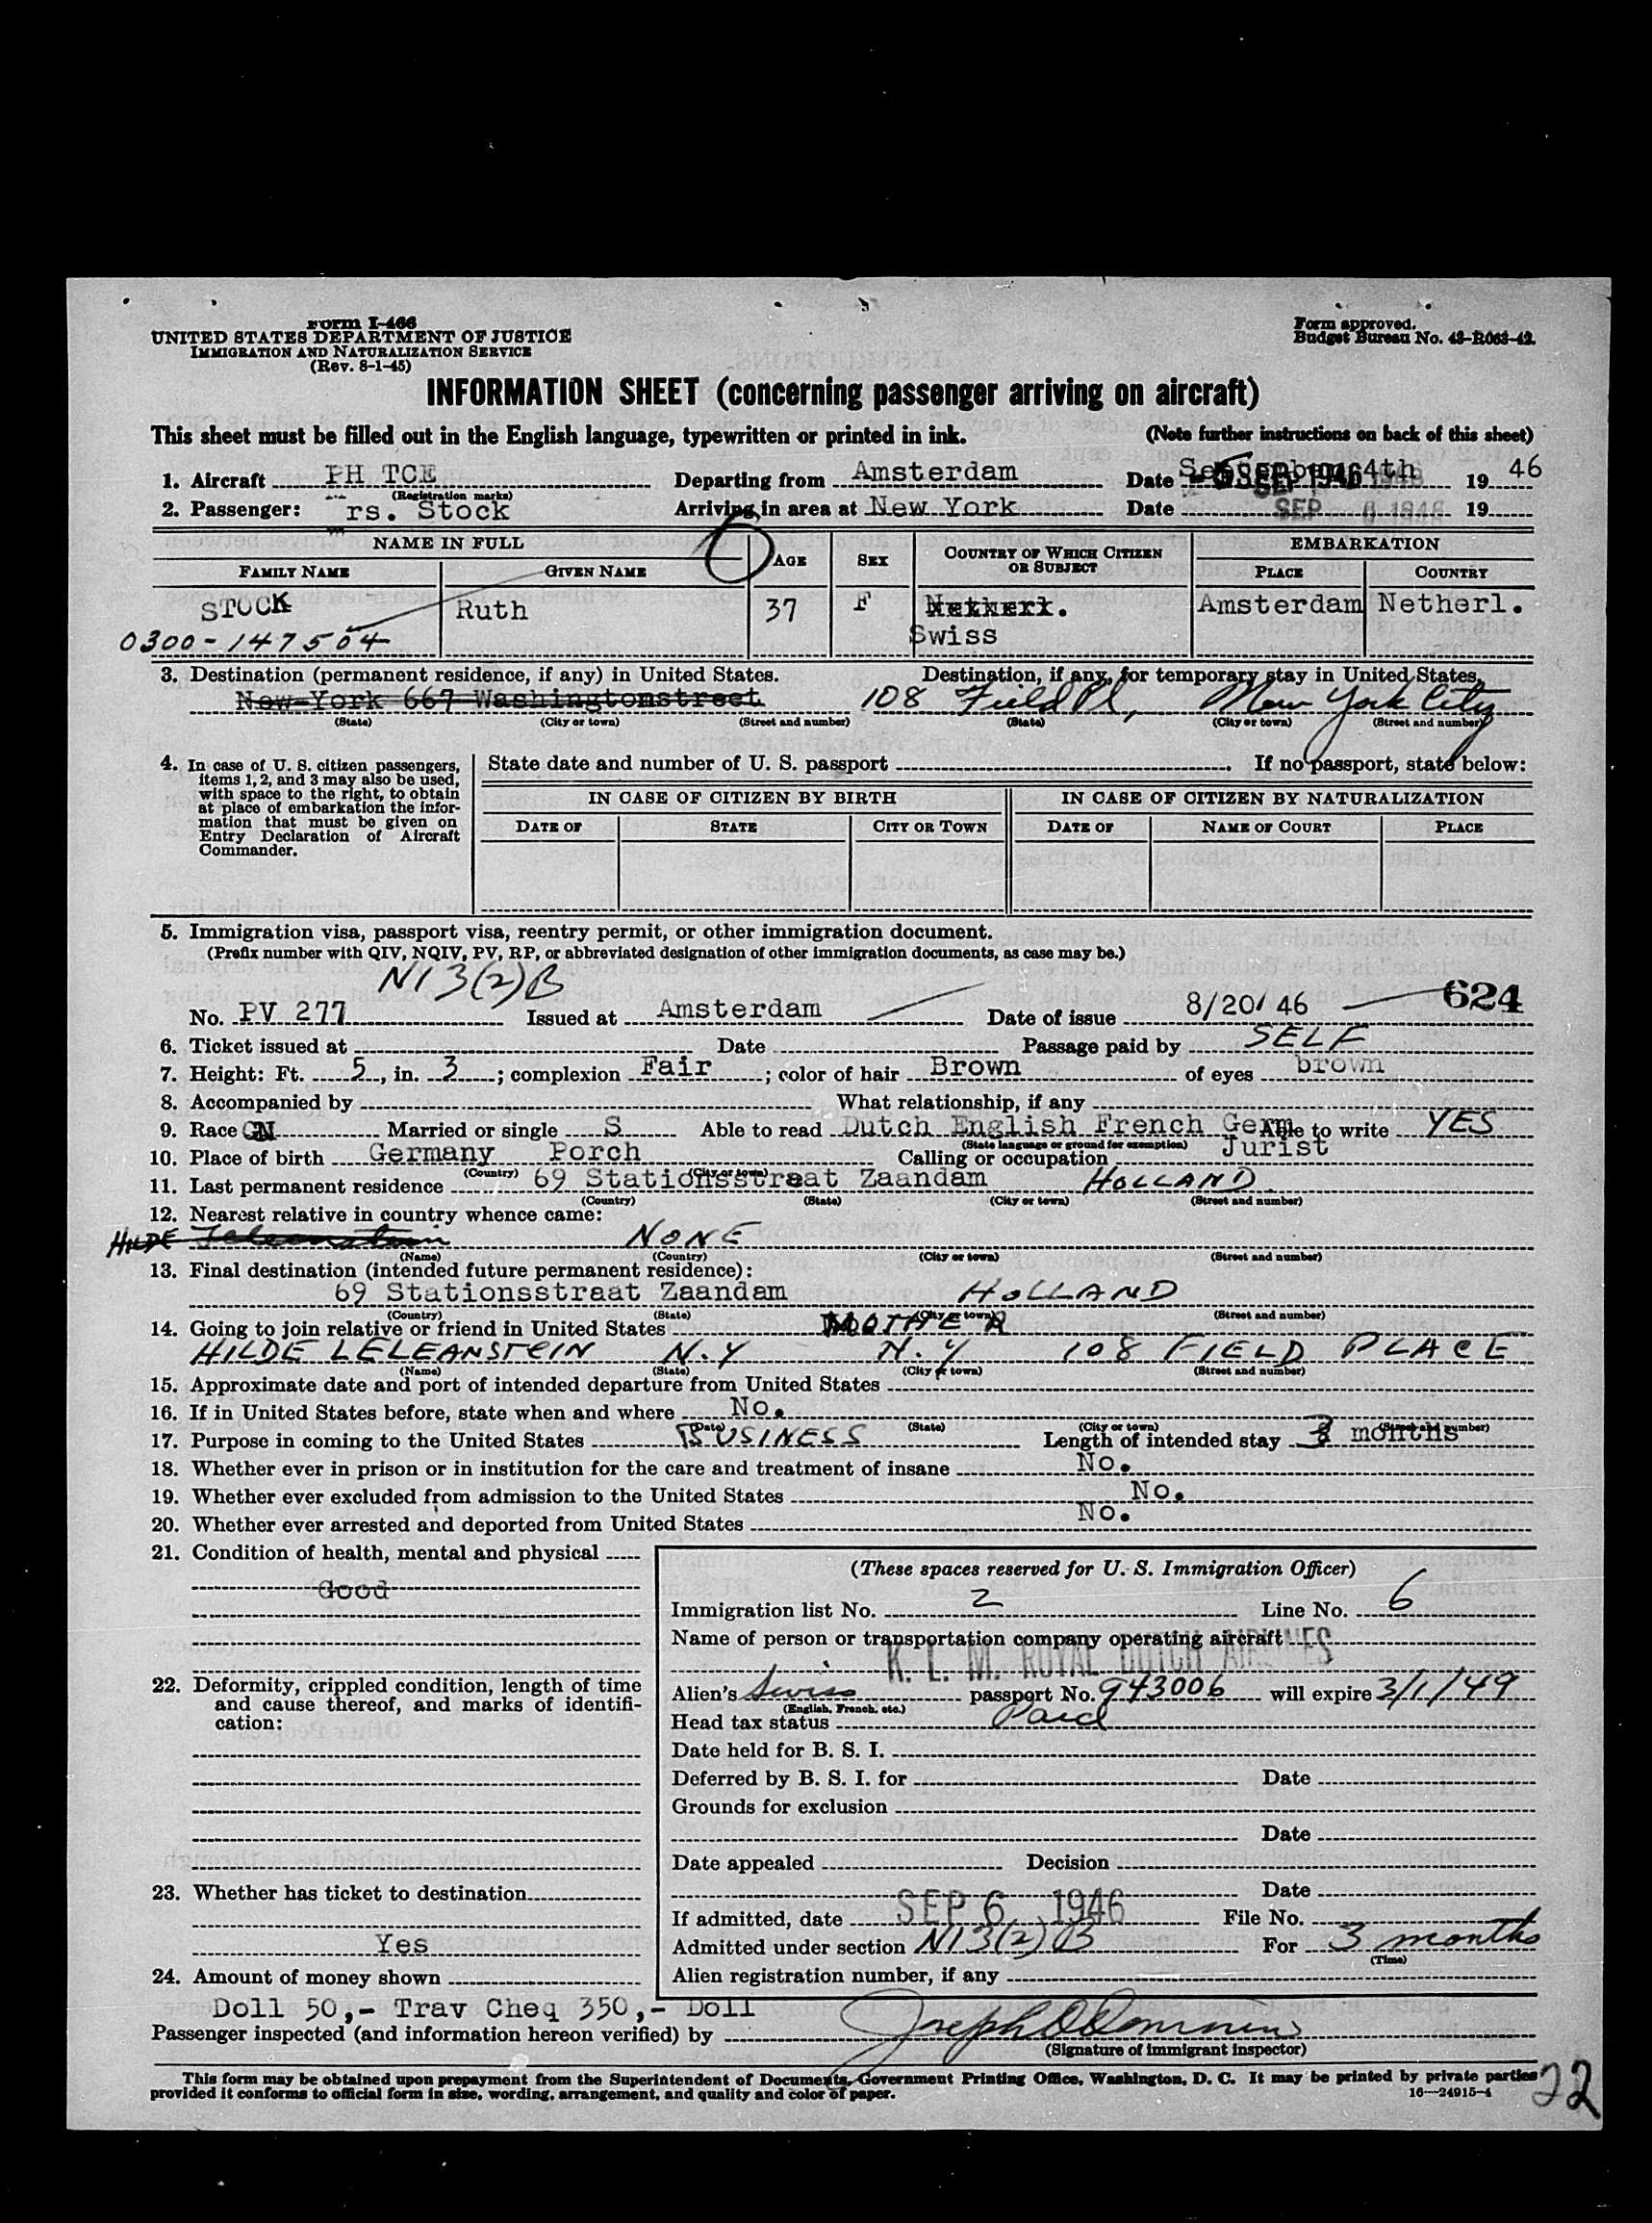 Form I-466
UNITED STATES DEPARTMENT OF JUSTICE
IMMIGRATION AND NATURALIZATION SERVICE
(Rev. 8-1-45)
Form approved.
Budget Bureau No. 43-R063-42.
INFORMATION SHEET (concerning passenger arriving on aircraft)
This sheet must be filled out in the English language, typewritten or printed in ink. (Note further instructions on back of this sheet)
1. Aircraft PH TCE Departing from Amsterdam Date September 4th 1946
(Registration marks)
2. Passenger: rs. Stock Arriving in area at New York Date SEP 6 1946 19
NAME IN FULL AGE SEX COUNTRY OF WHICH CITIZEN OR SUBJECT EMBARKATION
FAMILY NAME GIVEN NAME PLACE COUNTRY
STOCK Ruth 37 F Netherl. Amsterdam Netherl.
0300-147504 Swiss
3. Destination (permanent residence, if any) in United States. Destination, if any, for temporary stay in United States,
New-York 667 Washingtonstreet 108 Field Pl, New York City
(State) (City or town) (Street and number) (State) (City or town) (Street and number)
4. In case of U. S. citizen passengers, items 1, 2, and 3 may also be used, with space to the right, to obtain at place of embarkation the information that must be given on Entry Declaration of Aircraft Commander.
State date and number of U. S. passport . If no passport, state below:
IN CASE OF CITIZEN BY BIRTH IN CASE OF CITIZEN BY NATURALIZATION
DATE OF STATE CITY OR TOWN DATE OF NAME OF COURT PLACE
5. Immigration visa, passport visa, reentry permit, or other immigration document.
(Prefix number with QIV, NQIV, PV, RP, or abbreviated designation of other immigration documents, as case may be.)
NI 3(2)B
624
No. PV 277 Issued at Amsterdam Date of issue 8/20/ 46
6. Ticket issued at Date Passage paid by SELF
7. Height: Ft. 5, in. 3; complexion Fair; color of hair Brown of eyes brown
8. Accompanied by What relationship, if any
9. Race Married or single S Able to read Dutch English French Germ Able to write YES
(State language or ground for exemption)
10. Place of birth Germany Porch Calling or occupation Jurist
(Country) (City or town)
11. Last permanent residence 69 Stationsstraat Zaandam HOLLAND
(Country) (State) (City or town) (Street and number)
12. Nearest relative in country whence came:
HILDE NONE
(Name) (Country) (City or town) (Street and number)
13. Final destination (intended future permanent residence):
69 Stationsstraat Zaandam HOLLAND
(Country) (State) (City or town) (Street and number)
14. Going to join relative or friend in United States MOTHER
HILDE LELEANSTEIN N.Y N.Y 108 FIELD PLACE
(Name) (State) (City or town) (Street and number)
15. Approximate date and port of intended departure from United States
16. If in United States before, state when and where No.
(Date) (State) (City or town) (Street and number)
17. Purpose in coming to the United States BUSINESS Length of intended stay 3 months
18. Whether ever in prison or in institution for the care and treatment of insane No.
19. Whether ever excluded from admission to the United States No.
20. Whether ever arrested and deported from United States No.
21. Condition of health, mental and physical
Good
22. Deformity, crippled condition, length of time and cause thereof, and marks of identification:
23. Whether has ticket to destination
Yes
24. Amount of money shown
Doll 50,- Trav Cheq 350,- Doll
(These spaces reserved for U. S. Immigration Officer)
Immigration list No. 2 Line No. 6
Name of person or transportation company operating aircraft
K. L. M. ROYAL DUTCH AIRLINES
Alien's Swiss passport No. 943006 will expire 3/1/49
(English, French, etc.)
Head tax status Paid
Date held for B. S. I.
Deferred by B. S. I. for Date
Grounds for exclusion
Date
Date appealed Decision
Date
If admitted, date SEP 6 1946 File No.
Admitted under section NI 3(2)B For 3 months
(Time)
Alien registration number, if any
Passenger inspected (and information hereon verified) by
(Signature of immigrant inspector)
This form may be obtained upon prepayment from the Superintendent of Documents, Government Printing Office, Washington, D. C. It may be printed by private parties
provided it conforms to official form in size, wording, arrangement, and quality and color of paper. 16—24915-4
22